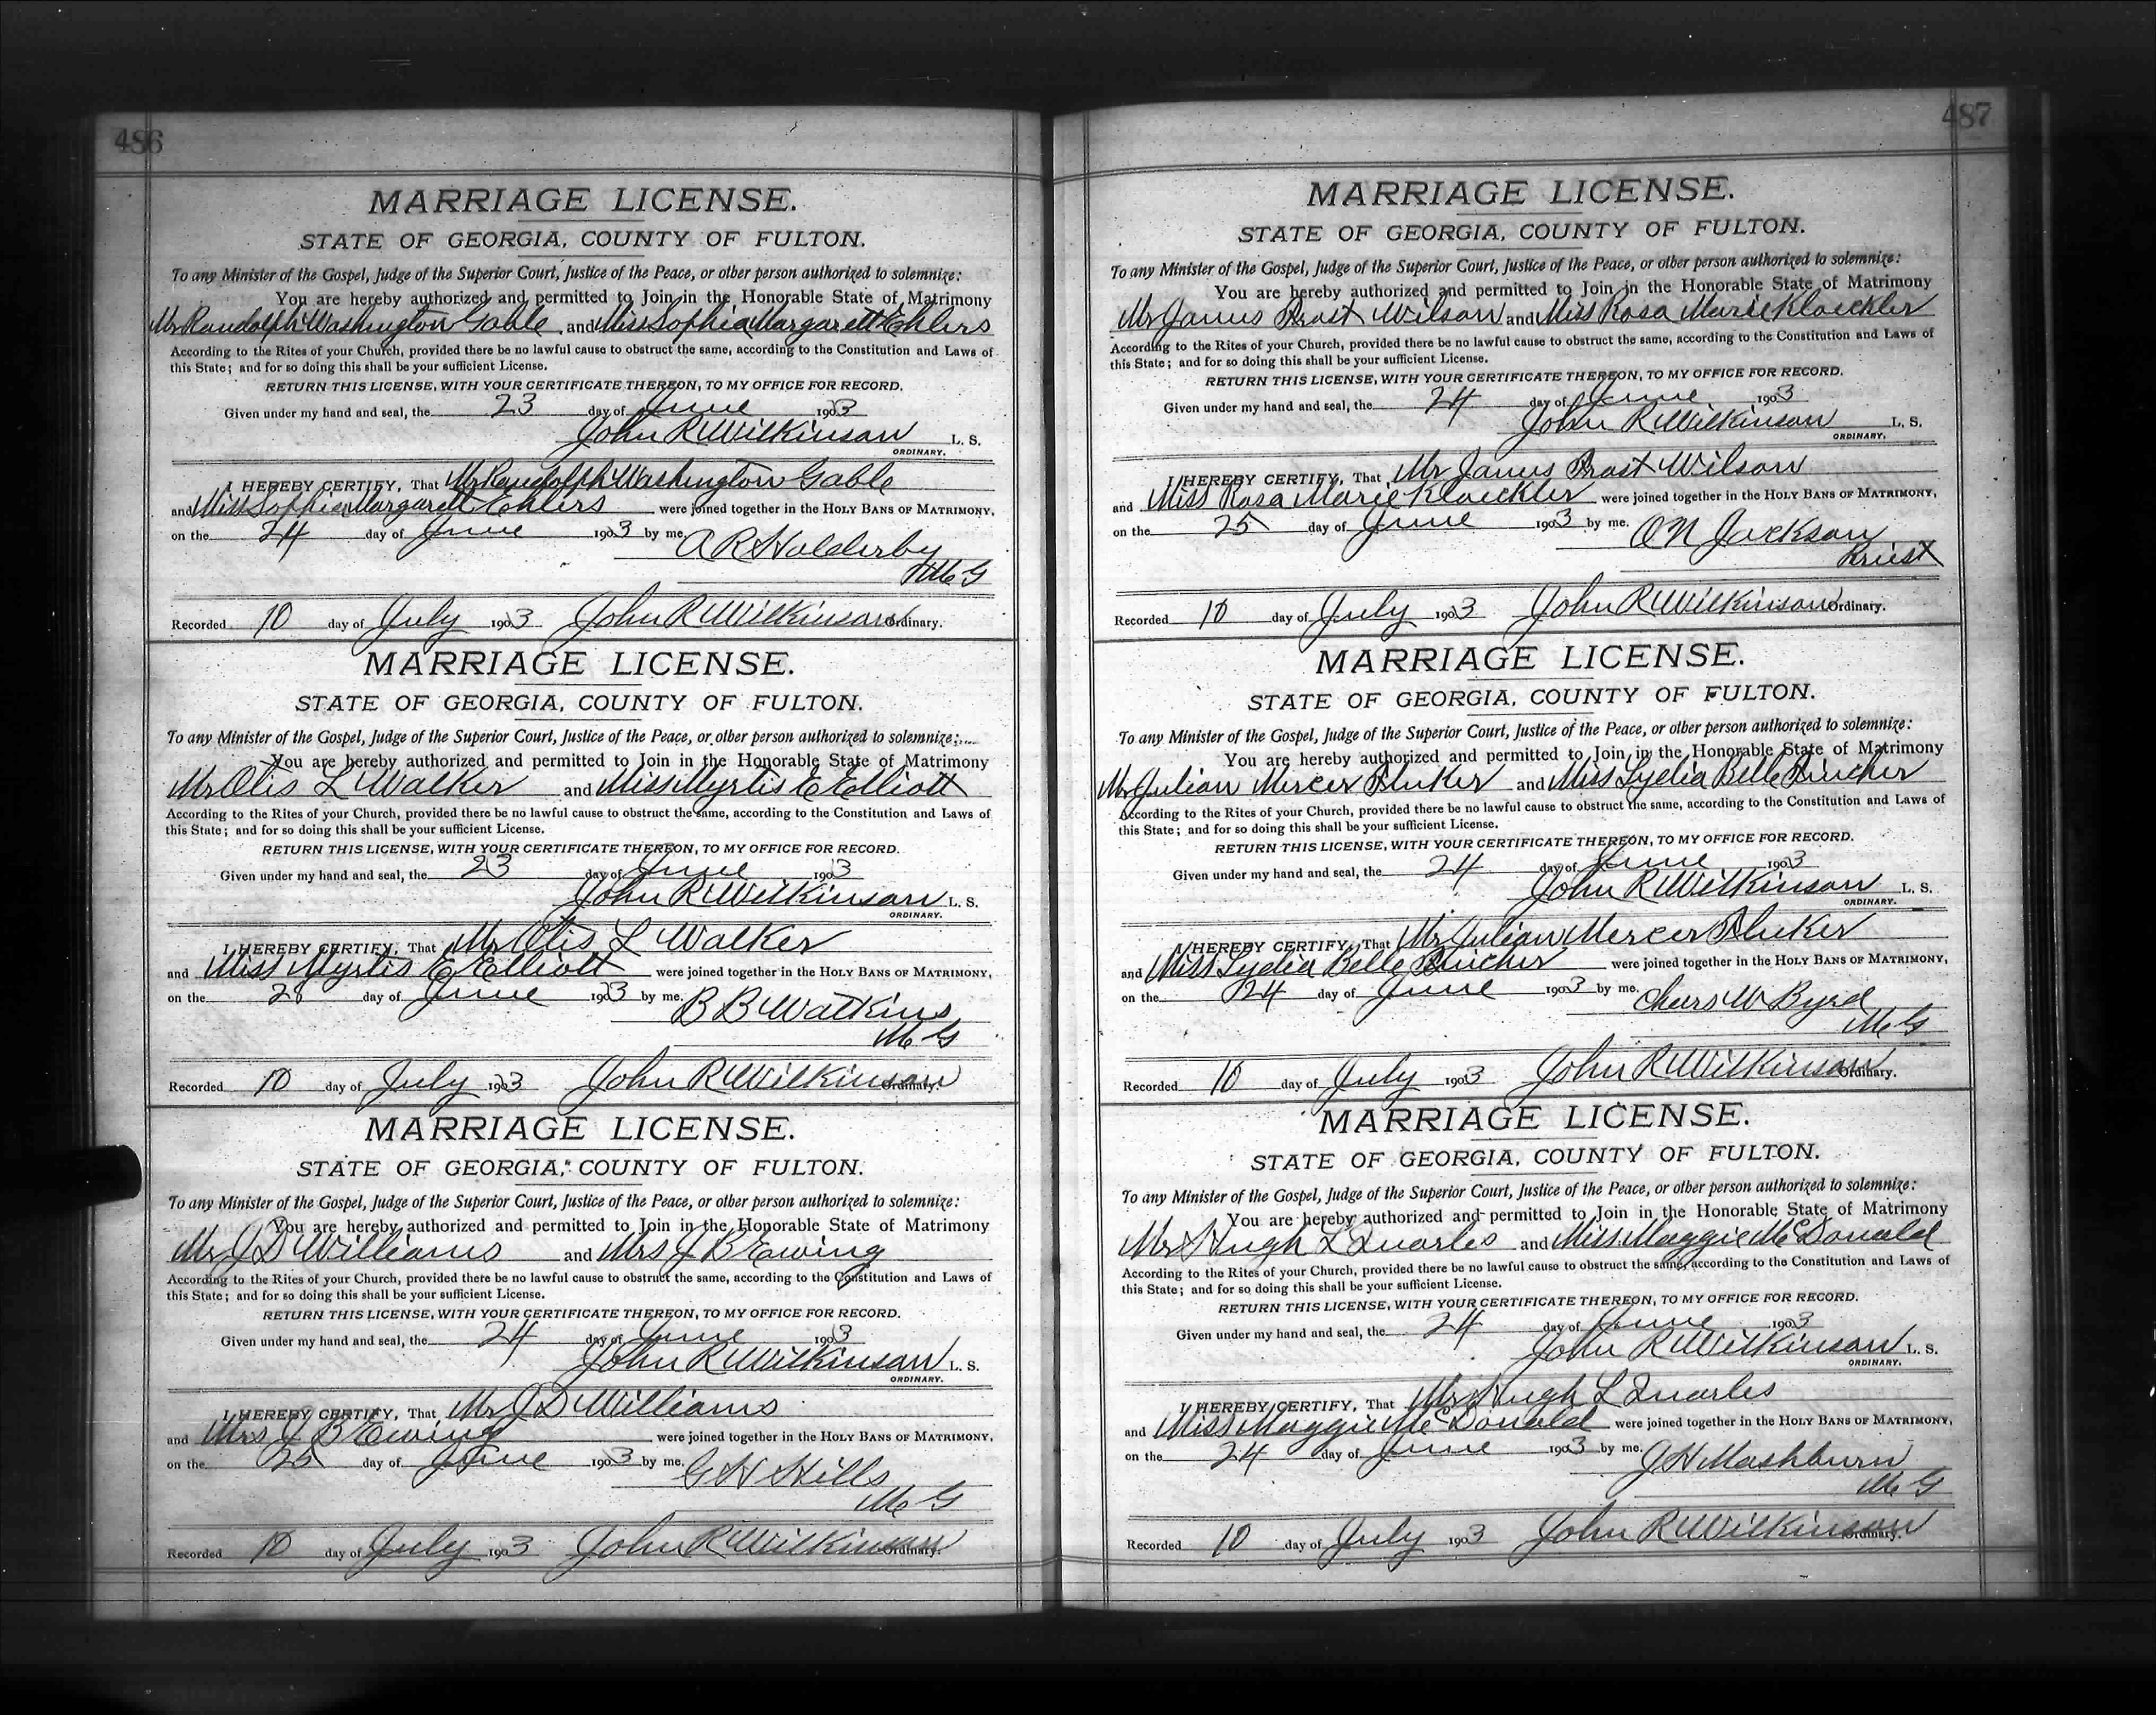 486
MARRIAGE LICENSE.
STATE OF GEORGIA, COUNTY OF FULTON.
To any Minister of the Gospel, Judge of the Superior Court, Justice of the Peace, or other person authorized to solemnize:
You are hereby authorized and permitted to Join in the Honorable State of Matrimony
Mr Randolph Washington Gable and Miss Sophia Margarett Ehlers
According to the Rites of your Church, provided there be no lawful cause to obstruct the same, according to the Constitution and Laws of
this State; and for so doing this shall be your sufficient License.
RETURN THIS LICENSE, WITH YOUR CERTIFICATE THEREON, TO MY OFFICE FOR RECORD.
Given under my hand and seal, the 23 day of June 1903
John R Wilkinson L. S.
ORDINARY.
I HEREBY CERTIFY, That Mr Randolph Washington Gable
and Miss Sophia Margarett Ehlers were joined together in the HOLY BANS OF MATRIMONY,
on the 24 day of June 1903 by me. A R Holderby
M G
Recorded 10 day of July 1903 John R Wilkinson Ordinary.
MARRIAGE LICENSE.
STATE OF GEORGIA, COUNTY OF FULTON.
To any Minister of the Gospel, Judge of the Superior Court, Justice of the Peace, or other person authorized to solemnize:
You are hereby authorized and permitted to Join in the Honorable State of Matrimony
Mr Otis L Walker and Miss Myrtis E Elliott
According to the Rites of your Church, provided there be no lawful cause to obstruct the same, according to the Constitution and Laws of
this State; and for so doing this shall be your sufficient License.
RETURN THIS LICENSE, WITH YOUR CERTIFICATE THEREON, TO MY OFFICE FOR RECORD.
Given under my hand and seal, the 23 day of June 1903
John R Wilkinson L. S.
ORDINARY.
I HEREBY CERTIFY, That Mr Otis L Walker
and Miss Myrtis E Elliott were joined together in the HOLY BANS OF MATRIMONY,
on the 28 day of June 1903 by me. B B Watkins
M G
Recorded 10 day of July 1903 John R Wilkinson Ordinary.
MARRIAGE LICENSE.
STATE OF GEORGIA, COUNTY OF FULTON.
To any Minister of the Gospel, Judge of the Superior Court, Justice of the Peace, or other person authorized to solemnize:
You are hereby authorized and permitted to Join in the Honorable State of Matrimony
Mr J D Williams and Mrs J B Ewing
According to the Rites of your Church, provided there be no lawful cause to obstruct the same, according to the Constitution and Laws of
this State; and for so doing this shall be your sufficient License.
RETURN THIS LICENSE, WITH YOUR CERTIFICATE THEREON, TO MY OFFICE FOR RECORD.
Given under my hand and seal, the 24 day of June 1903
John R Wilkinson L. S.
ORDINARY.
I HEREBY CERTIFY, That Mr J D Williams
and Mrs J B Ewing were joined together in the HOLY BANS OF MATRIMONY,
on the 25 day of June 1903 by me. G H
M G
Recorded 10 day of July 1903 John R Wilkinson Ordinary.
487
MARRIAGE LICENSE.
STATE OF GEORGIA, COUNTY OF FULTON.
To any Minister of the Gospel, Judge of the Superior Court, Justice of the Peace, or other person authorized to solemnize:
You are hereby authorized and permitted to Join in the Honorable State of Matrimony
Mr James Wilson and Miss Rosa Marie Kloeckler
According to the Rites of your Church, provided there be no lawful cause to obstruct the same, according to the Constitution and Laws of
this State; and for so doing this shall be your sufficient License.
RETURN THIS LICENSE, WITH YOUR CERTIFICATE THEREON, TO MY OFFICE FOR RECORD.
Given under my hand and seal, the 24 day of June 1903
John R Wilkinson L. S.
ORDINARY.
I HEREBY CERTIFY, That Mr James Wilson
and Miss Rosa Marie Kloeckler were joined together in the HOLY BANS OF MATRIMONY,
on the 25 day of June 1903 by me. O N Jackson
Priest
Recorded 10 day of July 1903 John R Wilkinson Ordinary.
MARRIAGE LICENSE.
STATE OF GEORGIA, COUNTY OF FULTON.
To any Minister of the Gospel, Judge of the Superior Court, Justice of the Peace, or other person authorized to solemnize:
You are hereby authorized and permitted to Join in the Honorable State of Matrimony
Mr Julian Mercer Fluker and Miss Lydia Belle Fincher
According to the Rites of your Church, provided there be no lawful cause to obstruct the same, according to the Constitution and Laws of
this State; and for so doing this shall be your sufficient License.
RETURN THIS LICENSE, WITH YOUR CERTIFICATE THEREON, TO MY OFFICE FOR RECORD.
Given under my hand and seal, the 24 day of June 1903
John R Wilkinson L. S.
ORDINARY.
I HEREBY CERTIFY, That Mr Julian Mercer Fluker
and Miss Lydia Belle Fincher were joined together in the HOLY BANS OF MATRIMONY,
on the 24 day of June 1903 by me. Chars W Byrd
M G
Recorded 10 day of July 1903 John R Wilkinson Ordinary.
MARRIAGE LICENSE.
STATE OF GEORGIA, COUNTY OF FULTON.
To any Minister of the Gospel, Judge of the Superior Court, Justice of the Peace, or other person authorized to solemnize:
You are hereby authorized and permitted to Join in the Honorable State of Matrimony
Mr Hugh L Quarles and Miss Maggie McDonald
According to the Rites of your Church, provided there be no lawful cause to obstruct the same, according to the Constitution and Laws of
this State; and for so doing this shall be your sufficient License.
RETURN THIS LICENSE, WITH YOUR CERTIFICATE THEREON, TO MY OFFICE FOR RECORD.
Given under my hand and seal, the 24 day of June 1903
John R Wilkinson L. S.
ORDINARY.
I HEREBY CERTIFY, That Mr Hugh L Quarles
and Miss Maggie McDonald were joined together in the HOLY BANS OF MATRIMONY,
on the 24 day of June 1903 by me. J H Mashburn
M G
Recorded 10 day of July 1903 John R Wilkinson Ordinary.